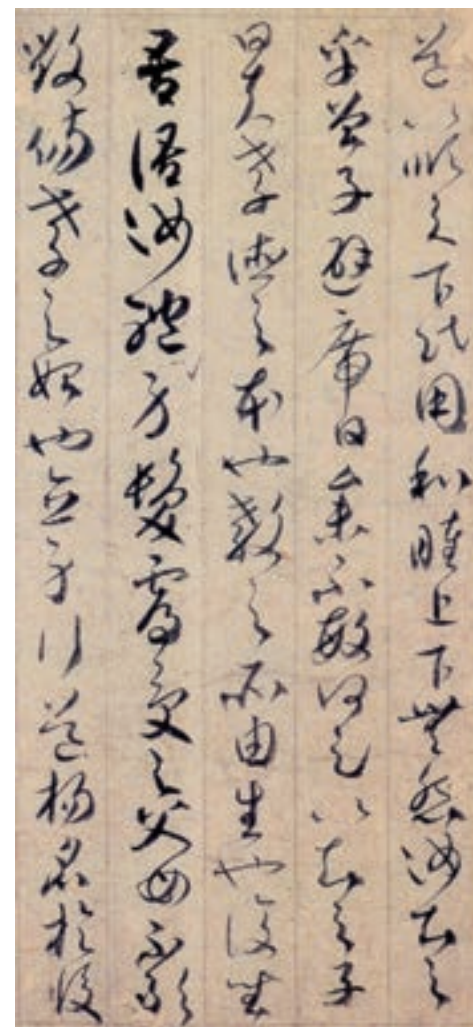 道以順天下民用和睦上下無怨汝知之
乎曾子避席曰參不敏何足以知之子
曰夫孝德之本也教之所由生也復坐
吾語汝體身髮膚受之父母不敢
毀傷孝之始也立身行道揚名於後